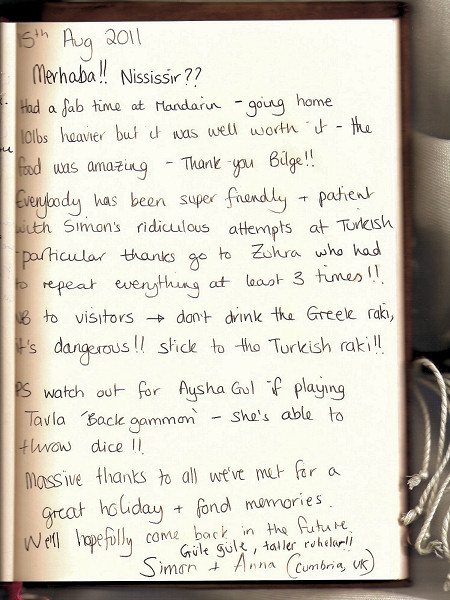 15th Aug 2011
Merhaba!! Nississir??
Had a fab time at Mandarin - going home
10lbs heavier but it was well worth it - the
food was amazing - Thank-you Bilge!!
Everybody has been super friendly + patient
with Simon's ridiculous attempts at Turkish
particular thanks go to Zuhra who had
to repeat everything at least 3 times!!
NB to visitors → don't drink the Greek raki,
it's dangerous!! stick to the Turkish raki!!
PS watch out for Aysha Gul if playing
Tavla 'Backgammon' - she's able to
throw dice!!
Massive thanks to all we've met for a
great holiday + fond memories.
We'll hopefully come back in the future.
Güle güle, tatler ruhelar!!
Simon + Anna (Cumbria, UK)